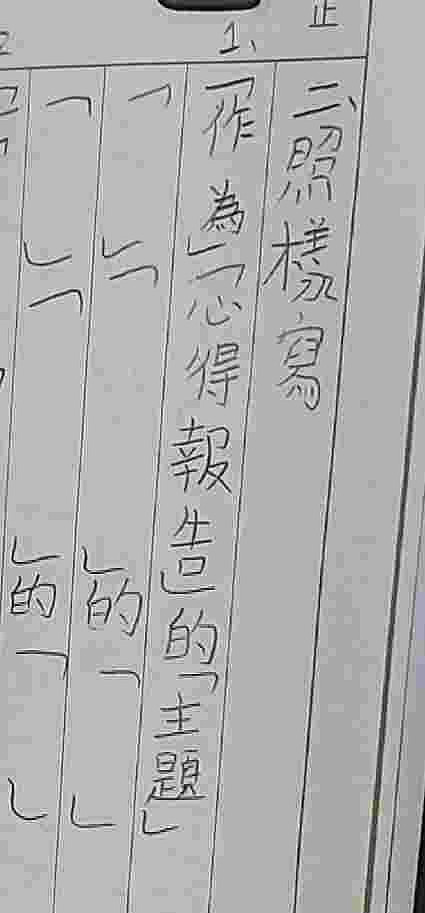 正
二、照樣寫
1、
「作為」「心得報告」的「主題」
「」「」的「」
「」「」的「」